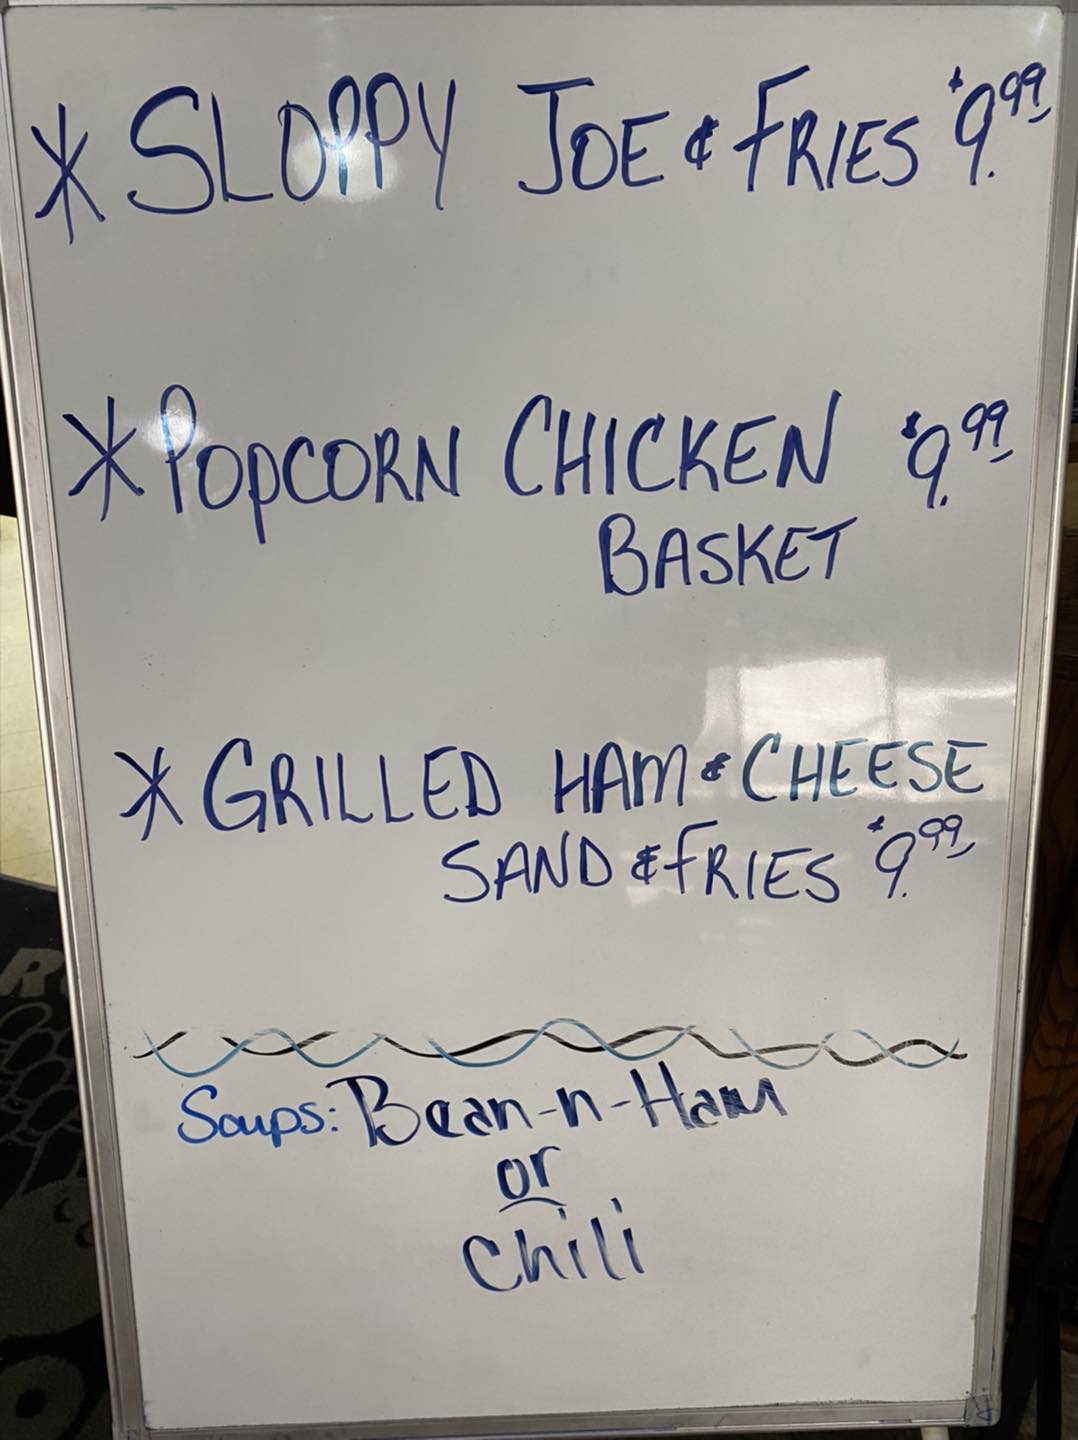 * SLOPPY JOE & FRIES $9.99
* POPCORN CHICKEN $9.99
BASKET
* GRILLED HAM & CHEESE
SAND & FRIES $9.99
Soups: Bean-n-Ham
or
Chili